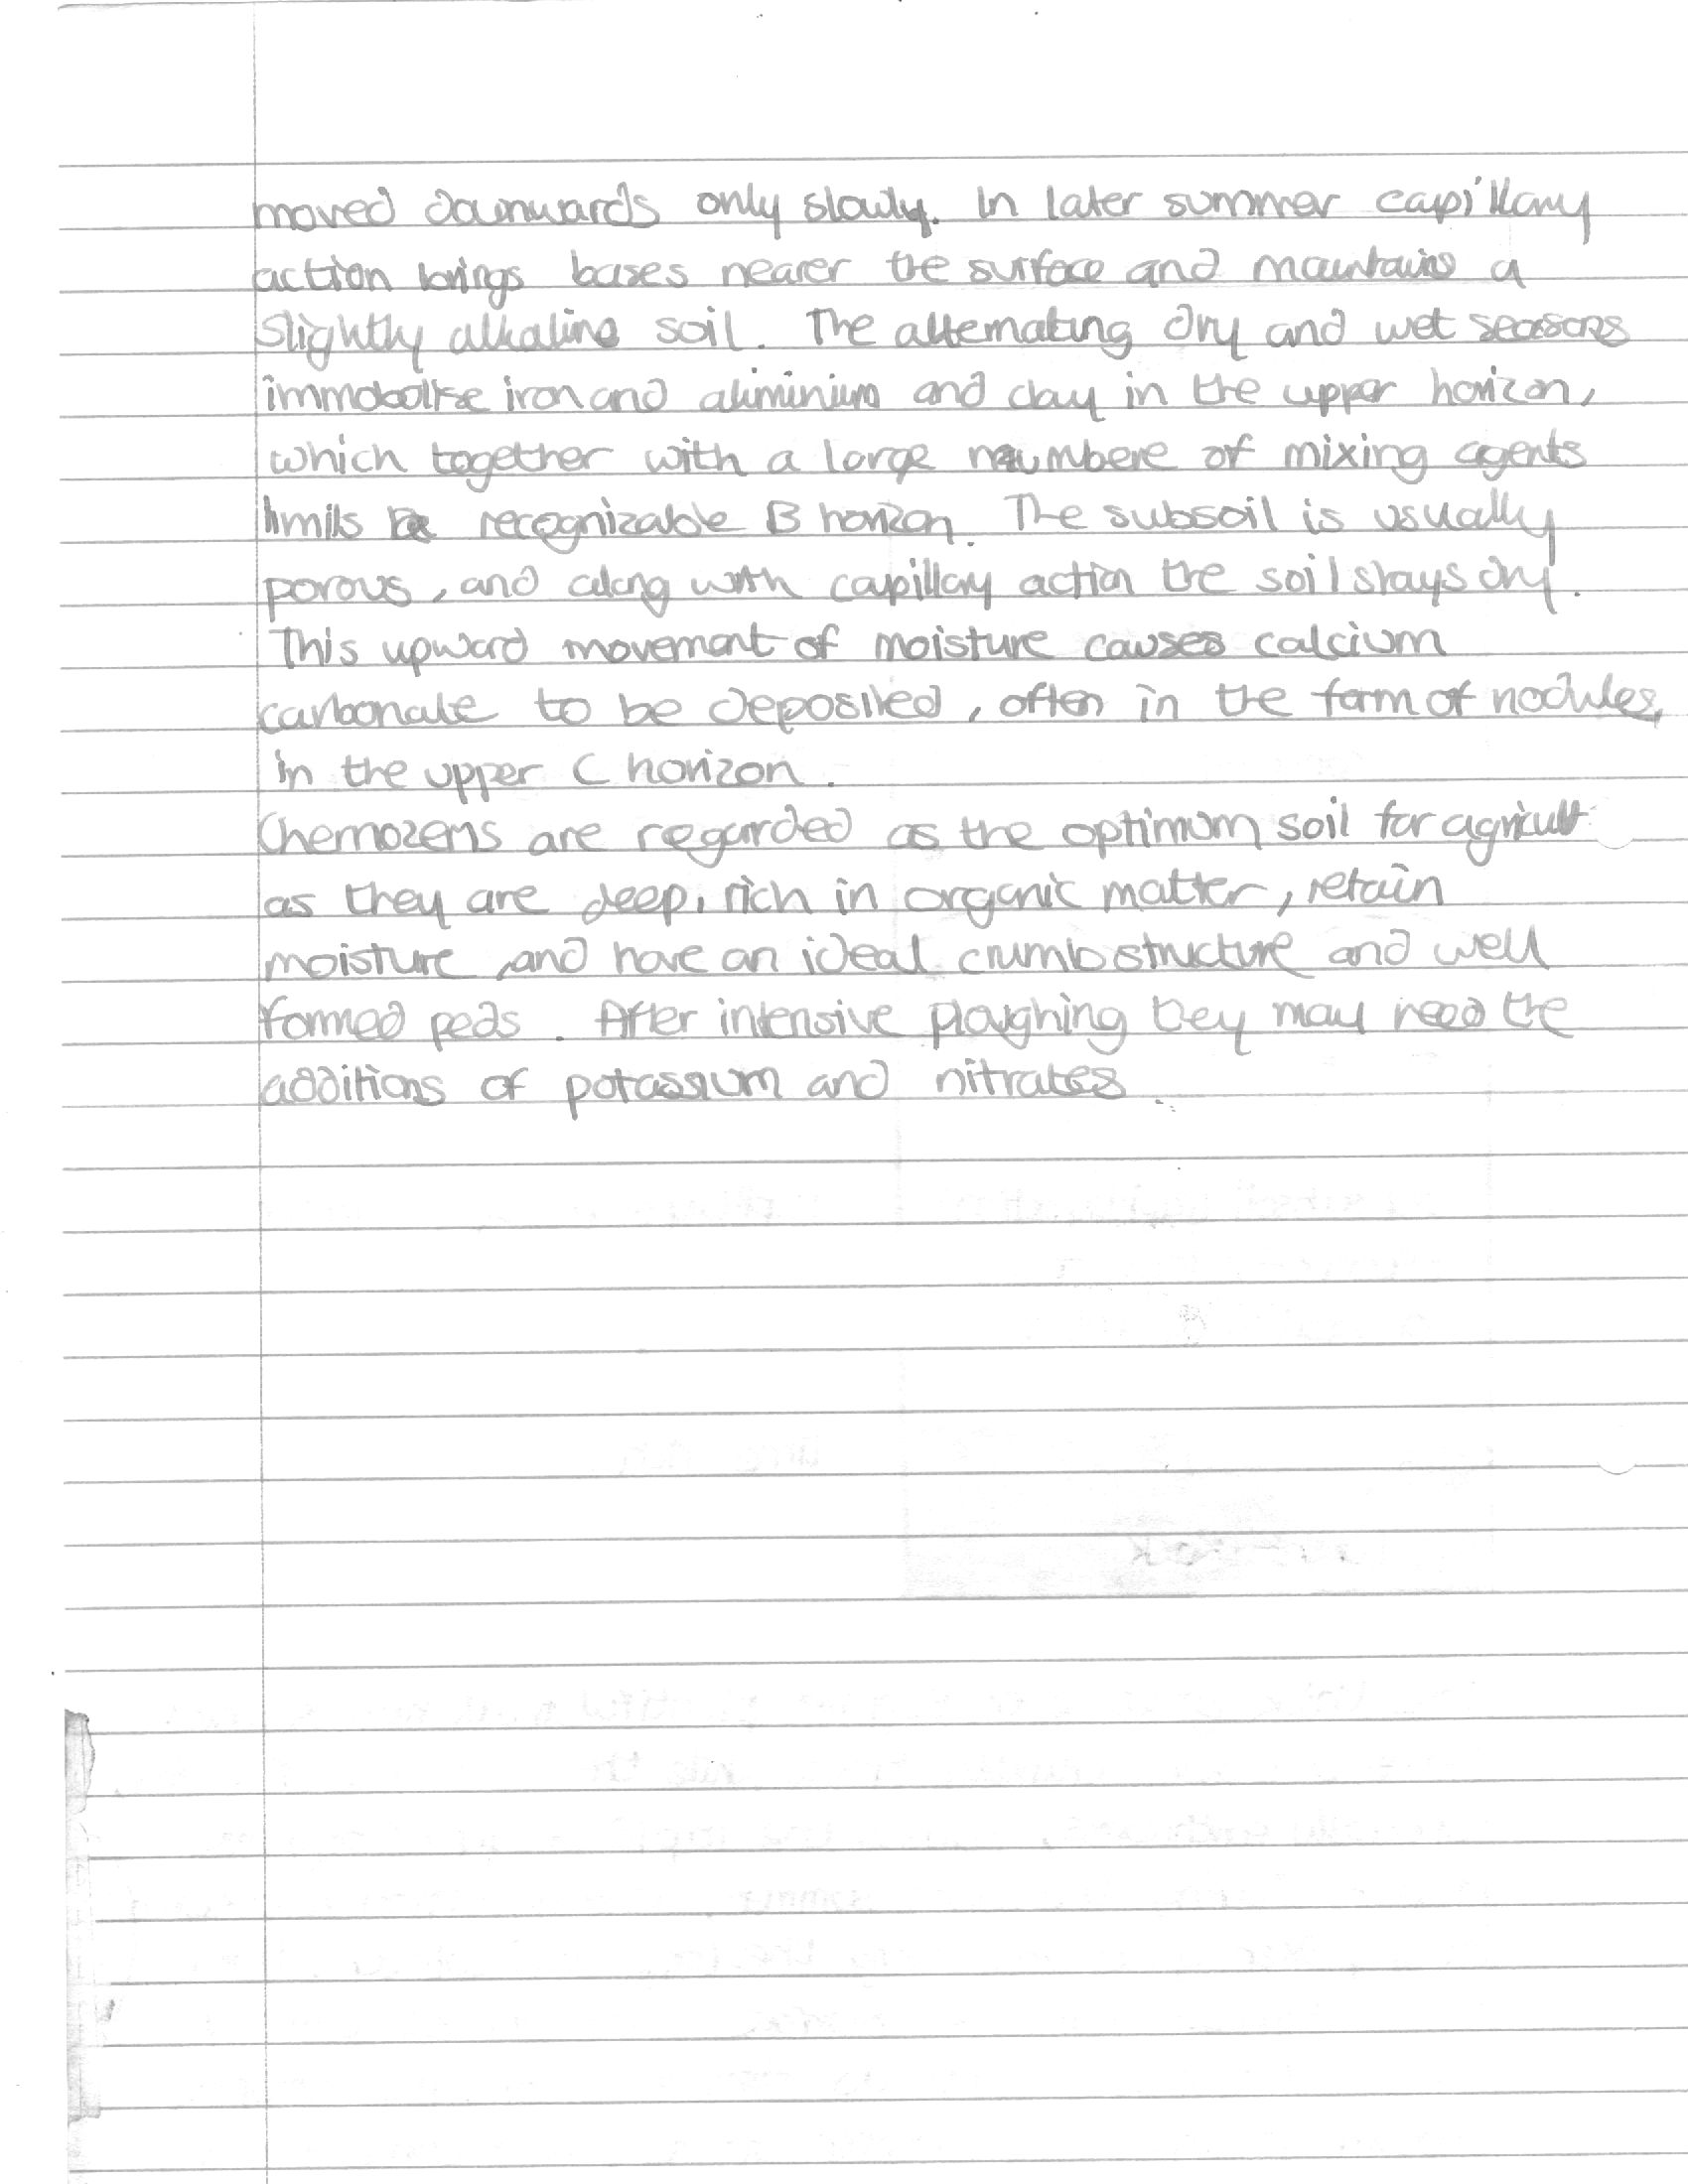 moved downwards only slowly. In later summer capillary
action brings bases nearer the surface and maintains a
slightly alkaline soil. The alternating dry and wet seasons
immobolise iron and aliminium and clay in the upper horizon,
which together with a large numbere of mixing agents
limits recognizable B horizon. The subsoil is usually
porous, and along with capillary action the soil stays dry.
This upward movement of moisture causes calcium
carbonate to be deposited, often in the form of nodules,
in the upper C horizon.
Chernozems are regarded as the optimum soil for agricult
as they are deep, rich in organic matter, retain
moisture, and have an ideal crumb structure and well
formed peds. After intensive ploughing they may need the
additions of potassium and nitrates.